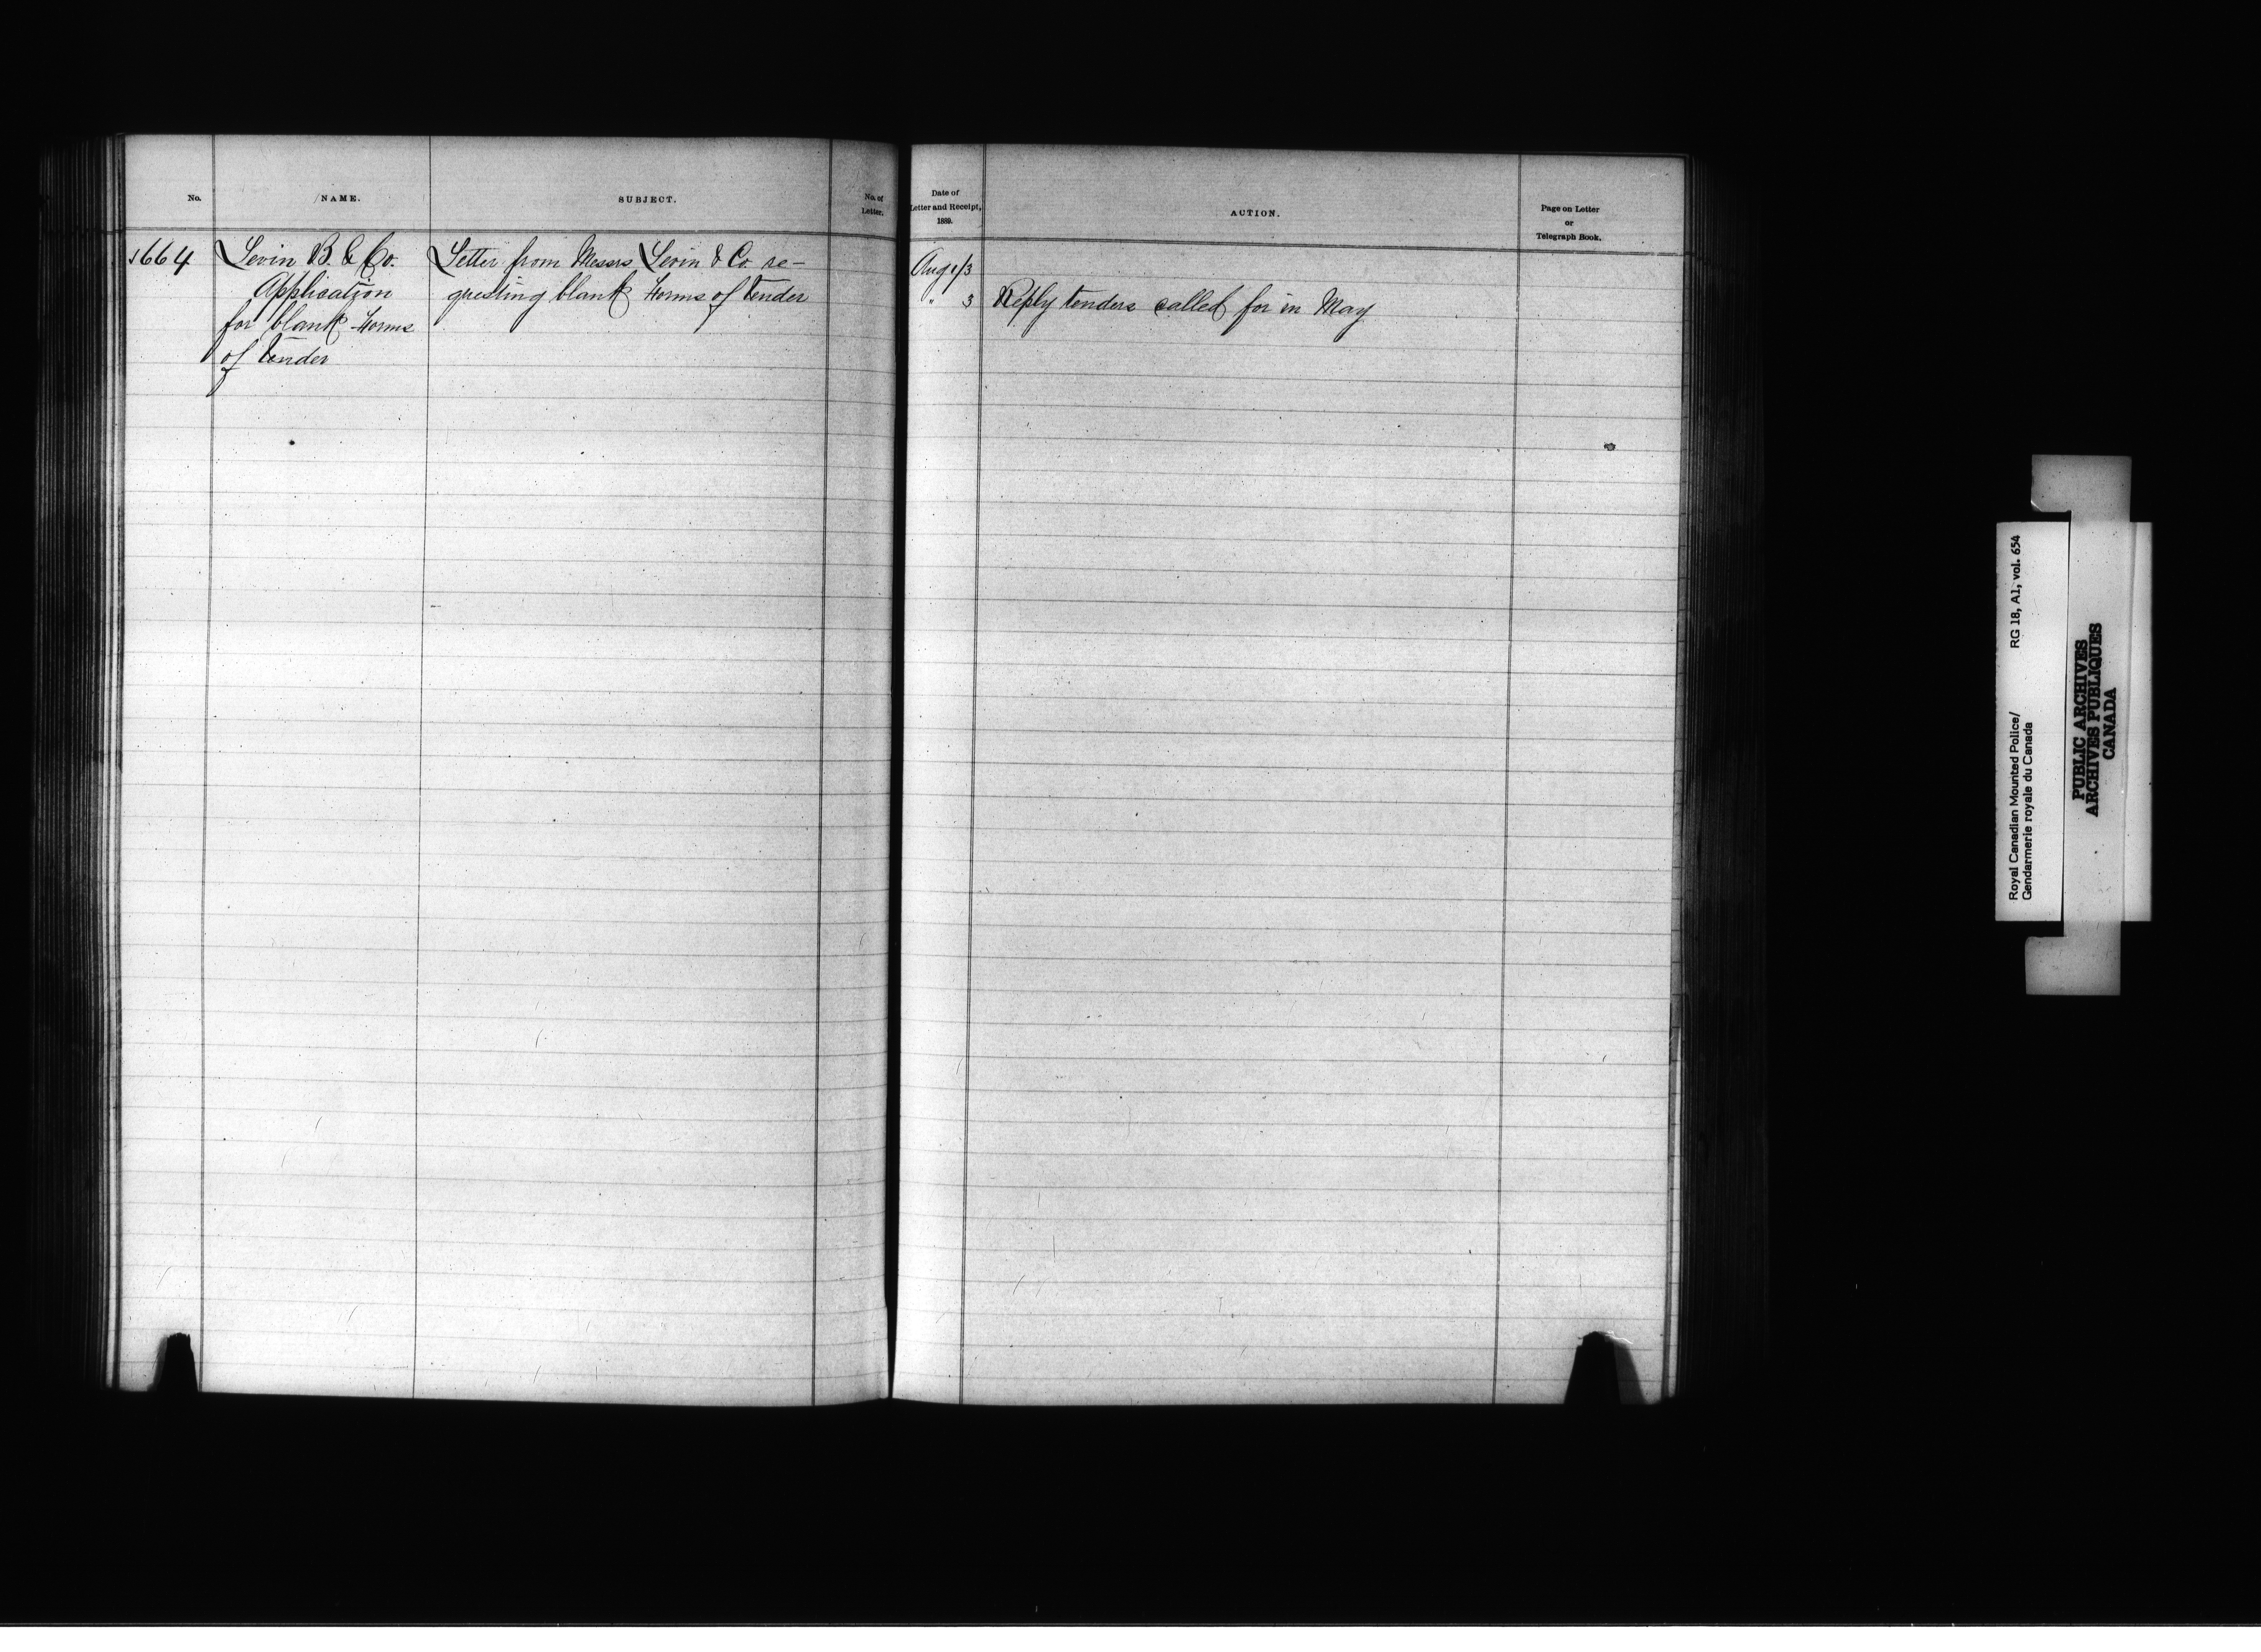 No.
NAME.
SUBJECT.
No. of
Letter.
1664
Levin B. & Co.
Application
for blank Forms
of tender
Letter from Messrs Levin & Co. re-
questing blank Forms of tender
Date of
Letter and Receipt,
1889.
ACTION.
Page on Letter
or
Telegraph Book.
Aug 1/3
" 3
Reply tenders called for in May
Royal Canadian Mounted Police/
Gendarmerie royale du Canada
RG 18, A1, vol. 654
PUBLIC ARCHIVES
ARCHIVES PUBLIQUES
CANADA